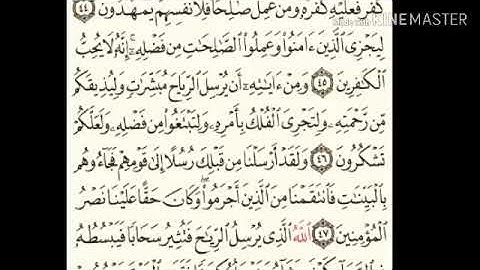 كَفَرَ فَعَلَيْهِ كُفْرُهُۥ وَمَنْ عَمِلَ صَٰلِحًا فَلِأَنفُسِهِمْ يَمْهَدُونَ ٤٤
KINEMASTER
لِيَجْزِىَ ٱلَّذِينَ ءَامَنُوا۟ وَعَمِلُوا۟ ٱلصَّٰلِحَٰتِ مِن فَضْلِهِۦٓ إِنَّهُۥ لَا يُحِبُّ
ٱلْكَٰفِرِينَ ٤٥ وَمِنْ ءَايَٰتِهِۦٓ أَن يُرْسِلَ ٱلرِّيَاحَ مُبَشِّرَٰتٍ وَلِيُذِيقَكُم
مِّن رَّحْمَتِهِۦ وَلِتَجْرِىَ ٱلْفُلْكُ بِأَمْرِهِۦ وَلِتَبْتَغُوا۟ مِن فَضْلِهِۦ وَلَعَلَّكُمْ
تَشْكُرُونَ ٤٦ وَلَقَدْ أَرْسَلْنَا مِن قَبْلِكَ رُسُلًا إِلَىٰ قَوْمِهِمْ فَجَآءُوهُم
بِٱلْبَيِّنَٰتِ فَٱنتَقَمْنَا مِنَ ٱلَّذِينَ أَجْرَمُوا۟ ۖ وَكَانَ حَقًّا عَلَيْنَا نَصْرُ
ٱلْمُؤْمِنِينَ ٤٧ ٱللَّهُ ٱلَّذِى يُرْسِلُ ٱلرِّيَٰحَ فَتُثِيرُ سَحَابًا فَيَبْسُطُهُۥ